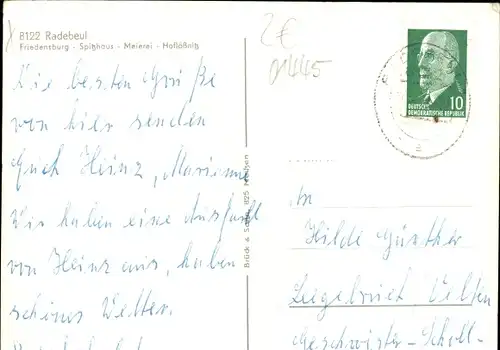 8122 Radebeul
Friedensburg - Spitzhaus - Meierei - Hoflößnitz
2€
Die besten Grüße
von hier senden
Euch Heinz, Marianne
Wir haben eine Ausfahrt
von Heinz aus, haben
schönes Wetter.
Brück & Sohn, 825 Meißen
DEUTSCHE
DEMOKRATISCHE REPUBLIK
10
An
Hilde Günther
Velten
Geschwister-Scholl-